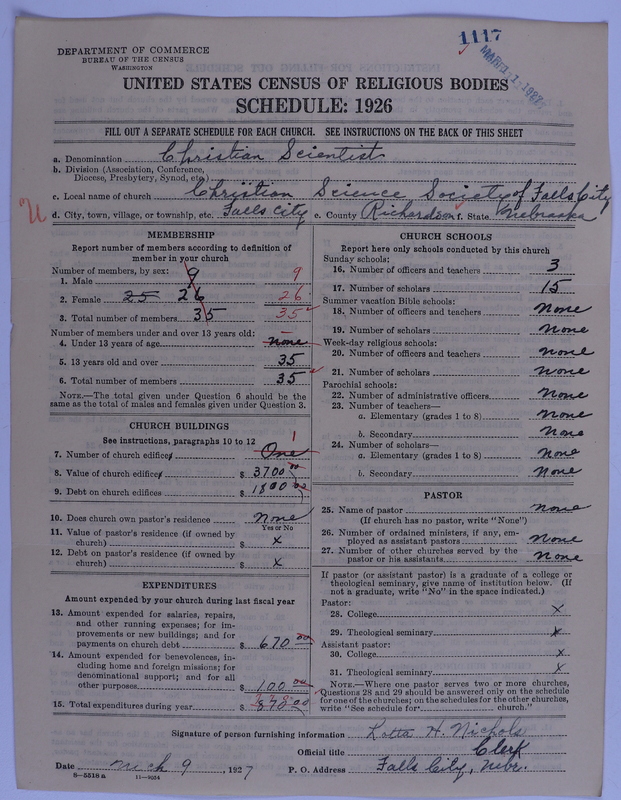 1117
MAR 11 1927
DEPARTMENT OF COMMERCE
BUREAU OF THE CENSUS
WASHINGTON
UNITED STATES CENSUS OF RELIGIOUS BODIES
SCHEDULE: 1926
FILL OUT A SEPARATE SCHEDULE FOR EACH CHURCH. SEE INSTRUCTIONS ON THE BACK OF THIS SHEET
a. Denomination Christian Scientist
b. Division (Association, Conference, Diocese, Presbytery, Synod, etc.)
c. Local name of church Christian Science Society of Falls City
U d. City, town, village, or township, etc. Falls City e. County Richardson f. State Nebraska
MEMBERSHIP
Report number of members according to definition of
member in your church
Number of members, by sex:
1. Male 9 9
2. Female 25 26 26
3. Total number of members 35 35
Number of members under and over 13 years old:
4. Under 13 years of age None
5. 13 years old and over 35
6. Total number of members 35
NOTE.—The total given under Question 6 should be
same as the total of males and females given under Question 3.
CHURCH BUILDINGS
See instructions, paragraphs 10 to 12
7. Number of church edifices One 1
8. Value of church edifices $ 3700 00
9. Debt on church edifices $ 1800 00
10. Does church own pastor's residence None
Yes or No
11. Value of pastor's residence (if owned by
church) $ x
12. Debt on pastor's residence (if owned by
church) $ x
EXPENDITURES
Amount expended by your church during last fiscal year
13. Amount expended for salaries, repairs,
and other running expenses; for im-
provements or new buildings; and for
payments on church debt $ 670 00
14. Amount expended for benevolences, in-
cluding home and foreign missions; for
denominational support; and for all
other purposes $ 100 00
15. Total expenditures during year $
CHURCH SCHOOLS
Report here only schools conducted by this church
Sunday schools:
16. Number of officers and teachers 3
17. Number of scholars 15
Summer vacation Bible schools:
18. Number of officers and teachers None
19. Number of scholars None
Week-day religious schools:
20. Number of officers and teachers None
21. Number of scholars None
Parochial schools:
22. Number of administrative officers None
23. Number of teachers—
a. Elementary (grades 1 to 8) None
b. Secondary None
24. Number of scholars—
a. Elementary (grades 1 to 8) None
b. Secondary None
PASTOR
25. Name of pastor None
(If church has no pastor, write "None")
26. Number of ordained ministers, if any, em-
ployed as assistant pastors None
27. Number of other churches served by the
pastor or his assistants None
If pastor (or assistant pastor) is a graduate of a college or
theological seminary, give name of institution below. (If
not a graduate, write "No" in the space indicated.)
Pastor:
28. College x
29. Theological seminary x
Assistant pastor:
30. College x
31. Theological seminary x
NOTE.—Where one pastor serves two or more churches,
Questions 28 and 29 should be answered only on the schedule
for one of the churches; on the schedules for the other churches,
write "See schedule for church."
Signature of person furnishing information Lotta H. Nichols
Official title Clerk
Date Mch 9, 1927 P. O. Address Falls City, Nebr.
S—5518 a 11—9054